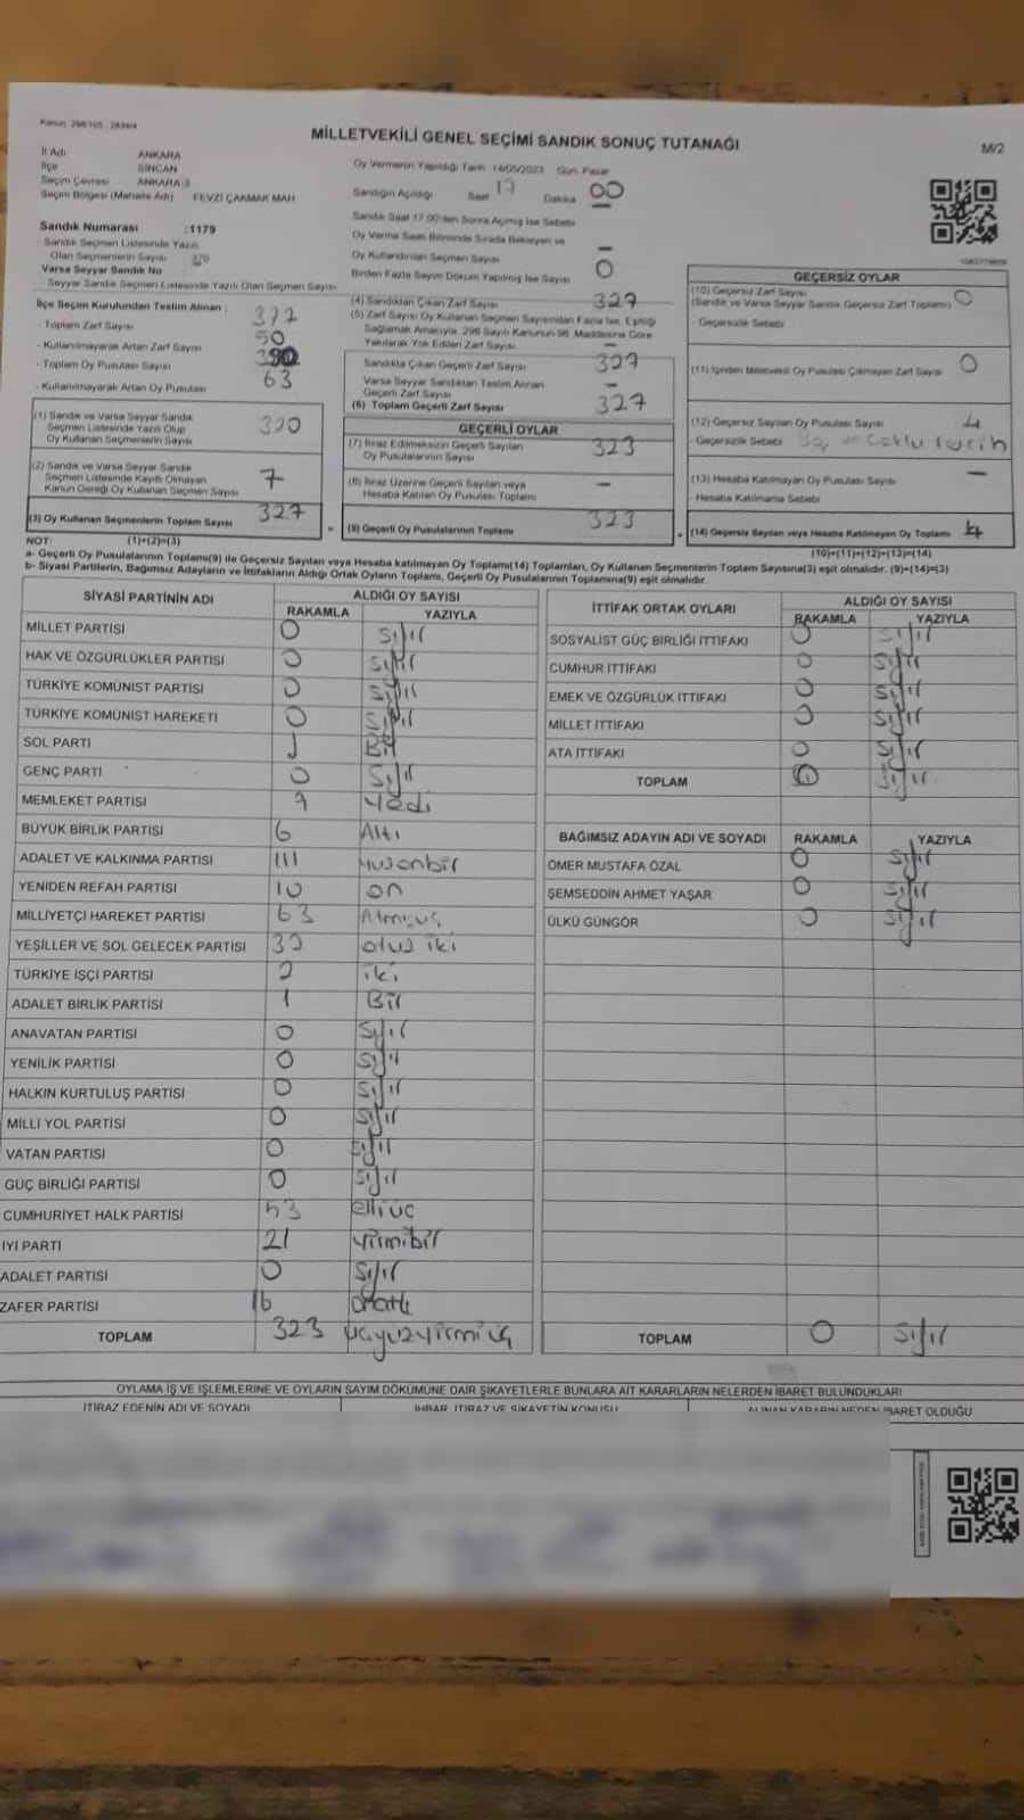 MİLLETVEKİLİ GENEL SEÇİMİ SANDIK SONUÇ TUTANAĞI
M/2
İl Adı ANKARA
İlçe SİNCAN
Seçim Çevresi ANKARA
Seçim Bölgesi (Mahalle Adı) FEVZİ ÇAKMAK MAH
Sandık Numarası :1179
Sandık Seçmen Listesinde Yazılı
Olan Seçmenlerin Sayısı
Varsa Seyyar Sandık No
Seyyar Sandık Seçmen Listesinde Yazılı Olan Seçmen Sayısı
İlçe Seçim Kurulundan Teslim Alınan :
- Toplam Zarf Sayısı
- Kullanılmayarak Artan Zarf Sayısı 50
- Toplam Oy Pusulası Sayısı
- Kullanılmayarak Artan Oy Pusulası 63
(1) Sandık ve Varsa Seyyar Sandık
Seçmen Listesinde Yazılı Olup
Oy Kullanan Seçmenlerin Sayısı 320
(2) Sandık ve Varsa Seyyar Sandık
Seçmen Listesinde Kayıtlı Olmayan
Kanun Gereği Oy Kullanan Seçmen Sayısı 7
(3) Oy Kullanan Seçmenlerin Toplam Sayısı 327
(1)+(2)=(3)
Oy Vermenin Yapıldığı Tarih 14/05/2023 Gün Pazar
Sandığın Açıldığı Saat 17 Dakika 00
Sandık Saat 17.00'den Sonra Açılmış İse Sebebi
Oy Verme Saati Bitiminde Sırada Bekleyen ve
Oy Kullandırılan Seçmen Sayısı -
Birden Fazla Sayım Döküm Yapılmış İse Sayısı 0
(4) Sandıktan Çıkan Zarf Sayısı 327
(5) Zarf Sayısı Oy Kullanan Seçmen Sayısından Fazla İse, Eşitliği
Sağlamak Amacıyla, 298 Sayılı Kanunun 98. Maddesine Göre
Yakılarak Yok Edilen Zarf Sayısı -
Sandıkta Çıkan Geçerli Zarf Sayısı 327
Varsa Seyyar Sandıktan Teslim Alınan
Geçerli Zarf Sayısı -
(6) Toplam Geçerli Zarf Sayısı 327
GEÇERLİ OYLAR
(7) İtiraz Edilmeksizin Geçerli Sayılan
Oy Pusulalarının Sayısı 323
(8) İtiraz Üzerine Geçerli Sayılan veya
Hesaba Katılan Oy Pusulası Toplamı -
(9) Geçerli Oy Pusulalarının Toplamı 323
GEÇERSİZ OYLAR
(10) Geçersiz Zarf Sayısı 0
(Sandık ve Varsa Seyyar Sandık Geçersiz Zarf Toplamı)
- Geçersizlik Sebebi
(11) İçinden Milletvekili Oy Pusulası Çıkmayan Zarf Sayısı 0
(12) Geçersiz Sayılan Oy Pusulası Sayısı 4
- Geçersizlik Sebebi
(13) Hesaba Katılmayan Oy Pusulası Sayısı -
- Hesaba Katılmama Sebebi
(14) Geçersiz Sayılan veya Hesaba Katılmayan Oy Toplamı 4
(10)+(11)+(12)+(13)=(14)
NOT:
a- Geçerli Oy Pusulalarının Toplamı(9) ile Geçersiz Sayılan veya Hesaba katılmayan Oy Toplamı(14) Toplamları, Oy Kullanan Seçmenlerin Toplam Sayısına(3) eşit olmalıdır. (9)+(14)=(3)
b- Siyasi Partilerin, Bağımsız Adayların ve İttifakların Aldığı Ortak Oyların Toplamı, Geçerli Oy Pusulalarının Toplamına(9) eşit olmalıdır.
SİYASİ PARTİNİN ADI ALDIĞI OY SAYISI
RAKAMLA YAZIYLA
MİLLET PARTİSİ 0 Sıfır
HAK VE ÖZGÜRLÜKLER PARTİSİ 0 Sıfır
TÜRKİYE KOMÜNİST PARTİSİ 0 Sıfır
TÜRKİYE KOMÜNİST HAREKETİ 0 Sıfır
SOL PARTİ 1 Bir
GENÇ PARTİ 0 Sıfır
MEMLEKET PARTİSİ 7 Yedi
BÜYÜK BİRLİK PARTİSİ 6 Altı
ADALET VE KALKINMA PARTİSİ 111 yüzonbir
YENİDEN REFAH PARTİSİ 10 on
MİLLİYETÇİ HAREKET PARTİSİ 63
YEŞİLLER VE SOL GELECEK PARTİSİ 32 otuz iki
TÜRKİYE İŞÇİ PARTİSİ 2 iki
ADALET BİRLİK PARTİSİ 1 Bir
ANAVATAN PARTİSİ 0 Sıfır
YENİLİK PARTİSİ 0 Sıfır
HALKIN KURTULUŞ PARTİSİ 0 Sıfır
MİLLİ YOL PARTİSİ 0 Sıfır
VATAN PARTİSİ 0 Sıfır
GÜÇ BİRLİĞİ PARTİSİ 0 Sıfır
CUMHURİYET HALK PARTİSİ 53 elliüç
İYİ PARTİ 21 yirmibir
ADALET PARTİSİ 0 Sıfır
ZAFER PARTİSİ 16 onaltı
TOPLAM 323 üçyüzyirmiüç
İTTİFAK ORTAK OYLARI ALDIĞI OY SAYISI
RAKAMLA YAZIYLA
SOSYALİST GÜÇ BİRLİĞİ İTTİFAKI 0 Sıfır
CUMHUR İTTİFAKI 0 Sıfır
EMEK VE ÖZGÜRLÜK İTTİFAKI 0 Sıfır
MİLLET İTTİFAKI 0 Sıfır
ATA İTTİFAKI 0 Sıfır
TOPLAM 0 Sıfır
BAĞIMSIZ ADAYIN ADI VE SOYADI RAKAMLA YAZIYLA
ÖMER MUSTAFA ÖZAL 0 Sıfır
ŞEMSEDDİN AHMET YAŞAR 0 Sıfır
ÜLKÜ GÜNGÖR 0 Sıfır
TOPLAM 0 Sıfır
OYLAMA İŞ VE İŞLEMLERİNE VE OYLARIN SAYIM DÖKÜMÜNE DAİR ŞİKAYETLERLE BUNLARA AİT KARARLARIN NELERDEN İBARET BULUNDUKLARI
İTİRAZ EDENİN ADI VE SOYADI İHBAR, İTİRAZ VE ŞİKAYETİN KONUSU ALINAN KARARIN NEDEN İBARET OLDUĞU